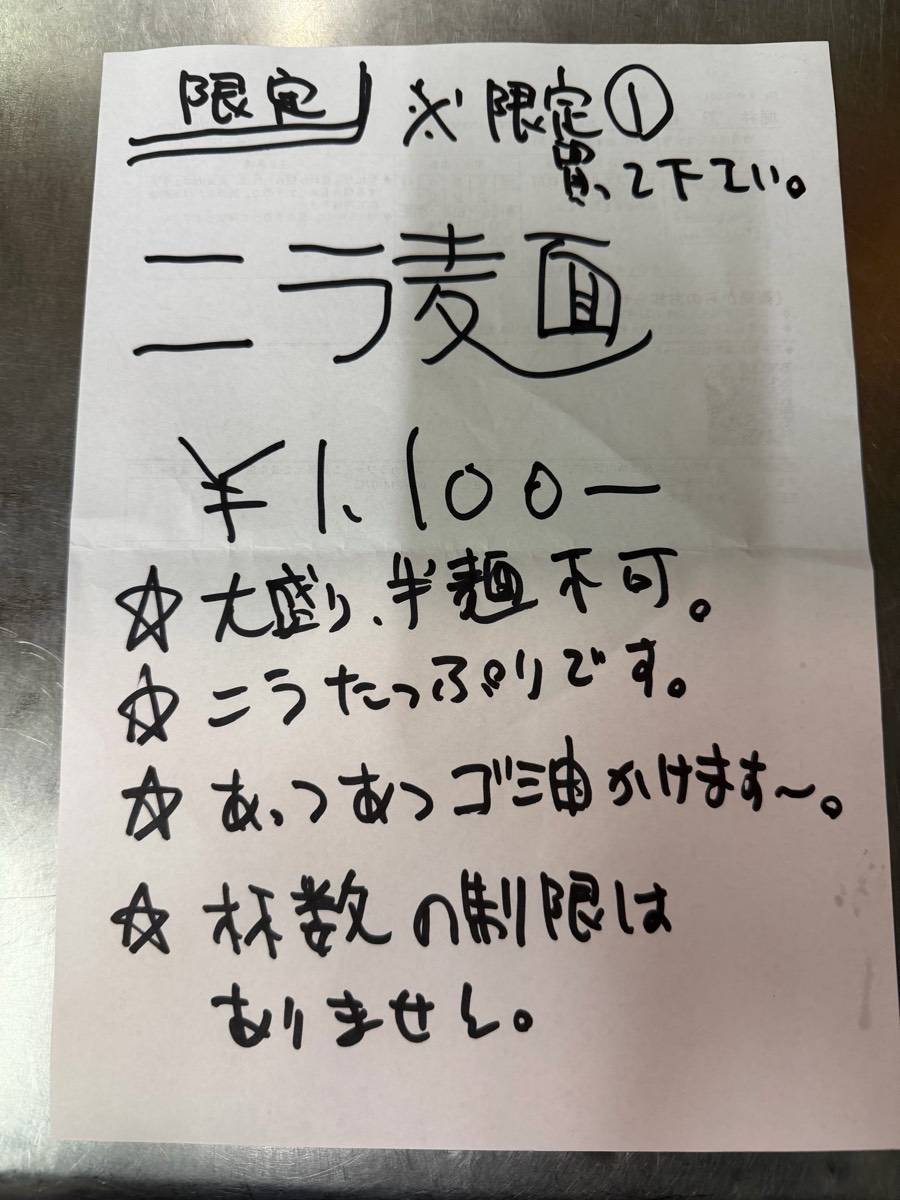 限定 ※限定①
買って下さい。
ニラ麦面
¥1,100ー
☆大盛り、半麺不可。
☆ニラたっぷりです。
☆あっつあつゴマ油かけます〜。
☆杯数の制限は
ありません。